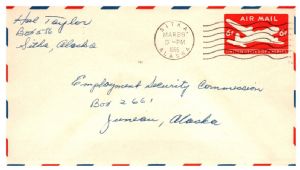 Hal Taylor
Box 576
Sitka, Alaska
SITKA
MAR 29
5-PM
1955
ALASKA
AIR MAIL
6¢ 6¢
UNITED STATES OF AMERICA
Employment Security Commission
Box 2661
Juneau, Alaska